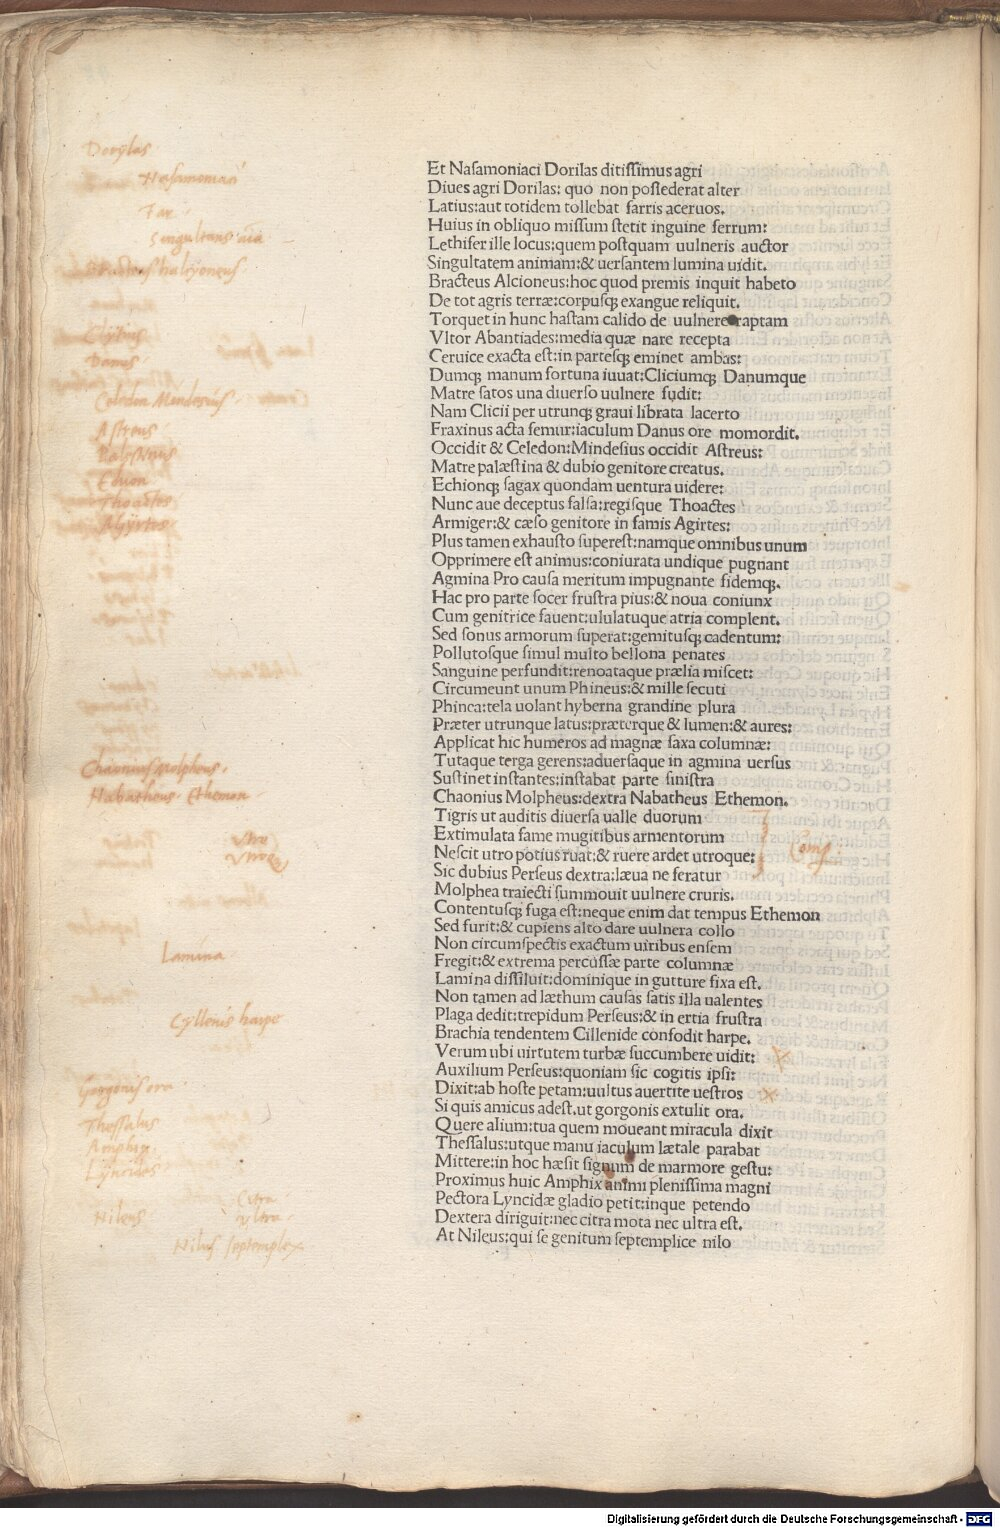 Et Nasamoniaci Dorilas ditissimus agri
Diues agri Dorilas: quo non possederat alter
Latius: aut totidem tollebat farris aceruos.
Huius in obliquo missum stetit inguine ferrum:
Lethifer ille locus: quem postquam uulneris auctor
Singultatem animam: & uersantem lumina uidit.
Bracteus Alcioneus: hoc quod premis inquit habeto
De tot agris terræ: corpusq; exangue reliquit.
Torquet in hunc hastam calido de uulnere raptam
Vltor Abantiades: media quæ nare recepta
Ceruice exacta est: in partesq; eminet ambas:
Dumq; manum fortuna iuuat: Cliciumq; Danumque
Matre satos una diuerso uulnere fudit:
Nam Clicii per utrunq; graui librata lacerto
Fraxinus acta femur: iaculum Danus ore momordit.
Occidit & Celedon: Mindesius occidit Astreus:
Matre palæstina & dubio genitore creatus.
Echionq; sagax quondam uentura uidere:
Nunc aue deceptus falsa: regisque Thoactes
Armiger: & cæso genitore in famis Agirtes:
Plus tamen exhausto superest: namque omnibus unum
Opprimere est animus: coniurata undique pugnant
Agmina Pro causa meritum impugnante fidemq;.
Hac pro parte socer frustra pius: & noua coniunx
Cum genitrice fauent: ululatuque atria complent.
Sed sonus armorum superat: gemitusq; cadentum:
Pollutosque simul multo bellona penates
Sanguine perfundit: renoataque prælia miscet:
Circumeunt unum Phineus: & mille secuti
Phinea: tela uolant hyberna grandine plura
Præter utrunque latus: præterque & lumen: & aures:
Applicat hic humeros ad magnæ saxa columnæ:
Tutaque terga gerens: aduersaque in agmina uersus
Sustinet instantes: instabat parte sinistra
Chaonius Molpheus: dextra Nabatheus Ethemon.
Tigris ut auditis diuersa ualle duorum
Extimulata fame mugitibus armentorum
Nescit utro potius ruat: & ruere ardet utroque:
Sic dubius Perseus dextra: læua ne feratur
Molphea traiecti summouit uulnere cruris.
Contentusq; fuga est: neque enim dat tempus Ethemon
Sed furit: & cupiens alto dare uulnera collo
Non circumspectis exactum uiribus ensem
Fregit: & extrema percussæ parte columnæ
Lamina dissiluit: dominique in gutture fixa est.
Non tamen ad læthum causas satis illa ualentes
Plaga dedit: trepidum Perseus: & in ertia frustra
Brachia tendentem Cillenide confodit harpe.
Verum ubi uirtutem turbæ succumbere uidit:
Auxilium Perseus: quoniam sic cogitis ipsi:
Dixit: ab hoste petam: uultus auertite uestros
Si quis amicus adest. ut gorgonis extulit ora.
Quere alium: tua quem moueant miracula dixit
Thessalus: utque manu iaculum lætale parabat
Mittere: in hoc hæsit signum de marmore gestu:
Proximus huic Amphix animi plenissima magni
Pectora Lyncidæ gladio petit: inque petendo
Dextera diriguit: nec citra mota nec ultra est.
At Nileus: qui se genitum septemplice nilo
Dorylas
Nasamoniaci
Far
Singultans aīa
Halcyoneus
Clytius
Danus
Celedon Mendesius
Astreus
Ethion
Thoactes
Agyrtes
Chaonius Molpheus.
Nabatheus Ethemon
Vtro
Lamina
Cyllenis harpe
Gorgonis ora
Thessalus
Amphix
Lyncides
Citra
Vltra
Nileus
Nilus septemplex
Digitalisierung gefördert durch die Deutsche Forschungsgemeinschaft - DFG